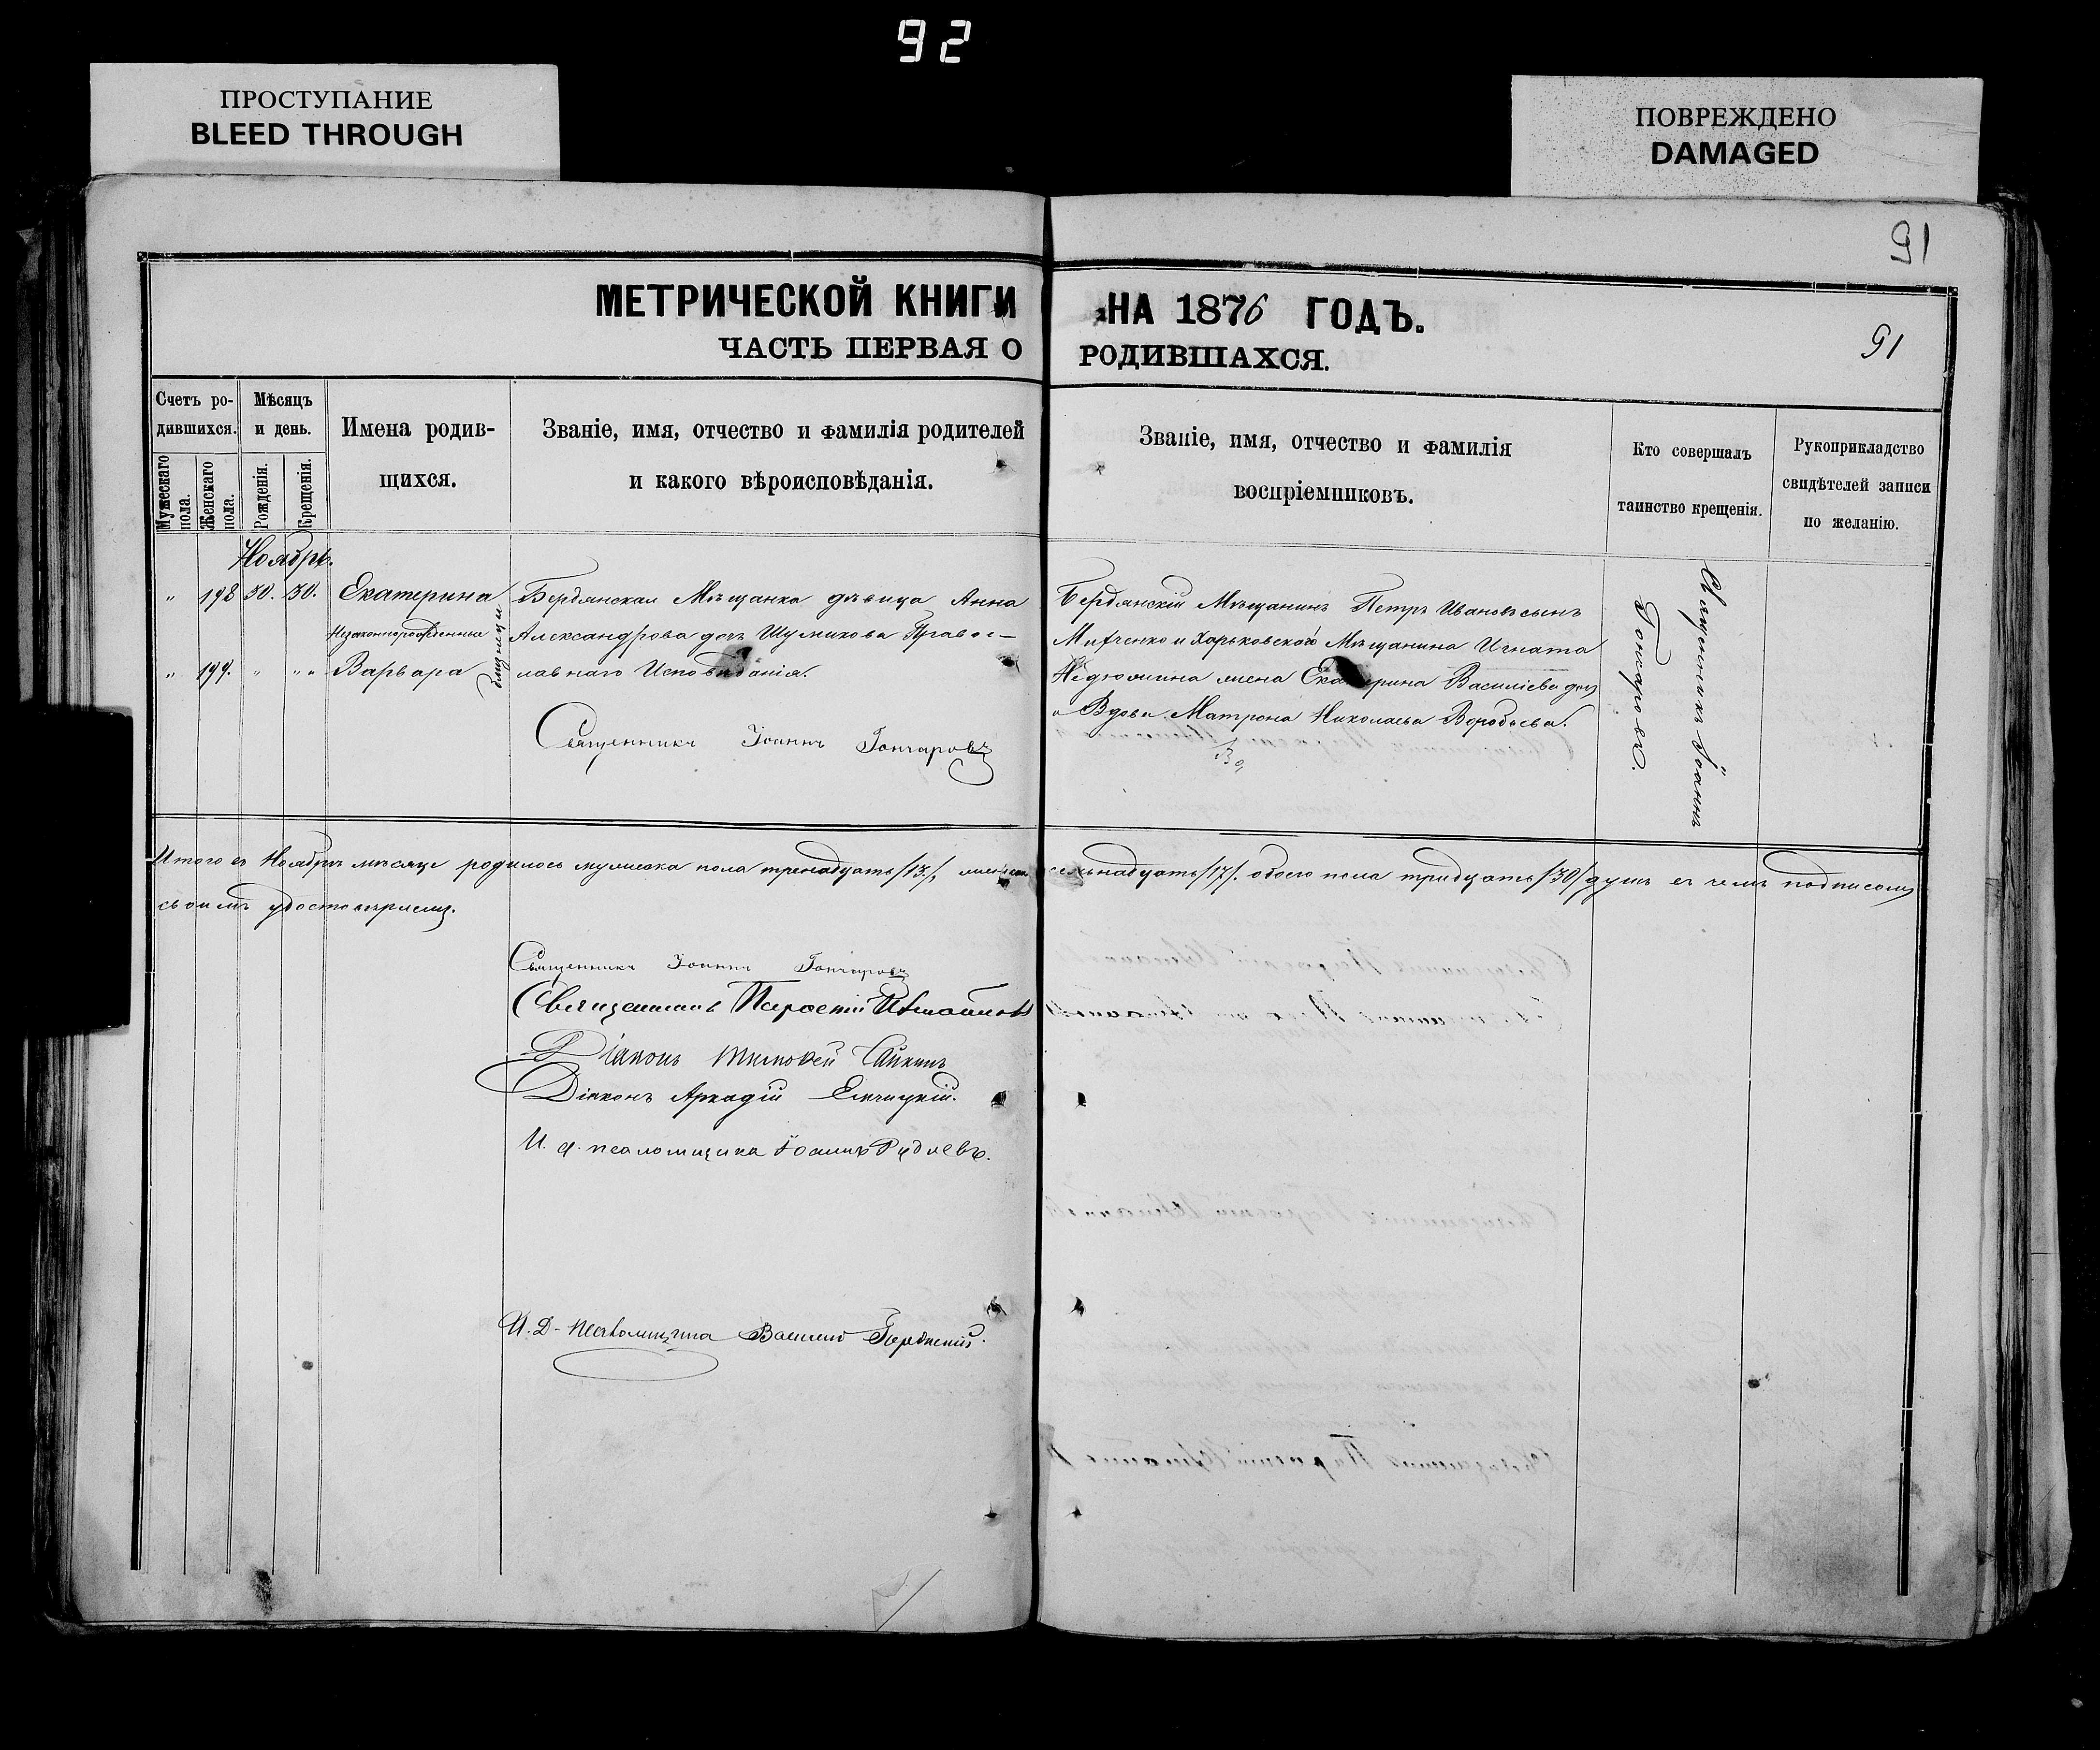 92
ПРОСТУПАНИЕ
BLEED THROUGH
ПОВРЕЖДЕНО
DAMAGED
91
МЕТРИЧЕСКОЙ КНИГИ НА 1876 ГОДЪ.
ЧАСТЬ ПЕРВАЯ О РОДИВШАХСЯ.
91
Счетъ ро-
дившихся.
Мужескаго пола.
Женскаго пола.
Мѣсяцъ
и день.
Рожденія.
Крещенія.
Имена родив-
щихся.
Званіе, имя, отчество и фамилія родителей
и какого вѣроисповѣданія.
Званіе, имя, отчество и фамилія
воспріемниковъ.
Кто совершалъ
таинство крещенія.
Рукоприкладство
свидѣтелей записи
по желанію.
Ноябрь.
" 198 30. 30. Екатерина
Незаконнорожденные
" 199. " " " Варвара
близнецы
Бердянская Мѣщанка дѣвица Анна
Александрова дочь Шумикова Правос-
лавнаго Исповѣданія.
Священникъ Іоаннъ Гончаровъ
Бердянскій Мѣщанинъ Петръ Ивановъ сынъ
и Харьковскаго Мѣщанина Игната
жена Екатерина Василіева дочь
и Вдова Матрона Николаева Воробьева.
Священникъ Іоаннъ
Гончаровъ.
Итого въ Ноябрѣ мѣсяце родилось мужеска пола тринадцать /13/, женска семьнадцать /17/. обоего пола тридцать /30/ душъ въ чемъ подписомъ
своимъ удостовѣряемъ.
Священникъ Іоаннъ Гончаровъ
Священникъ
Діаконъ Тимофей
Діаконъ Аркадій
И. д. псаломщика Іоаннъ Рудневъ.
И. Д. Псаломщика Василій